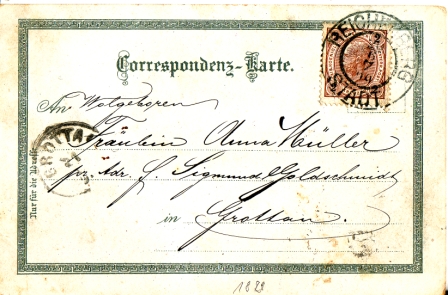 Correspondenz-Karte.
REICHENBERG
STADT
An Wolgeboren
Fräulein Anna Müller
GROTTAU
pr. Adr. f. Sigmund Goldschmidt
in Grottau.
Nur für die Adresse
1899